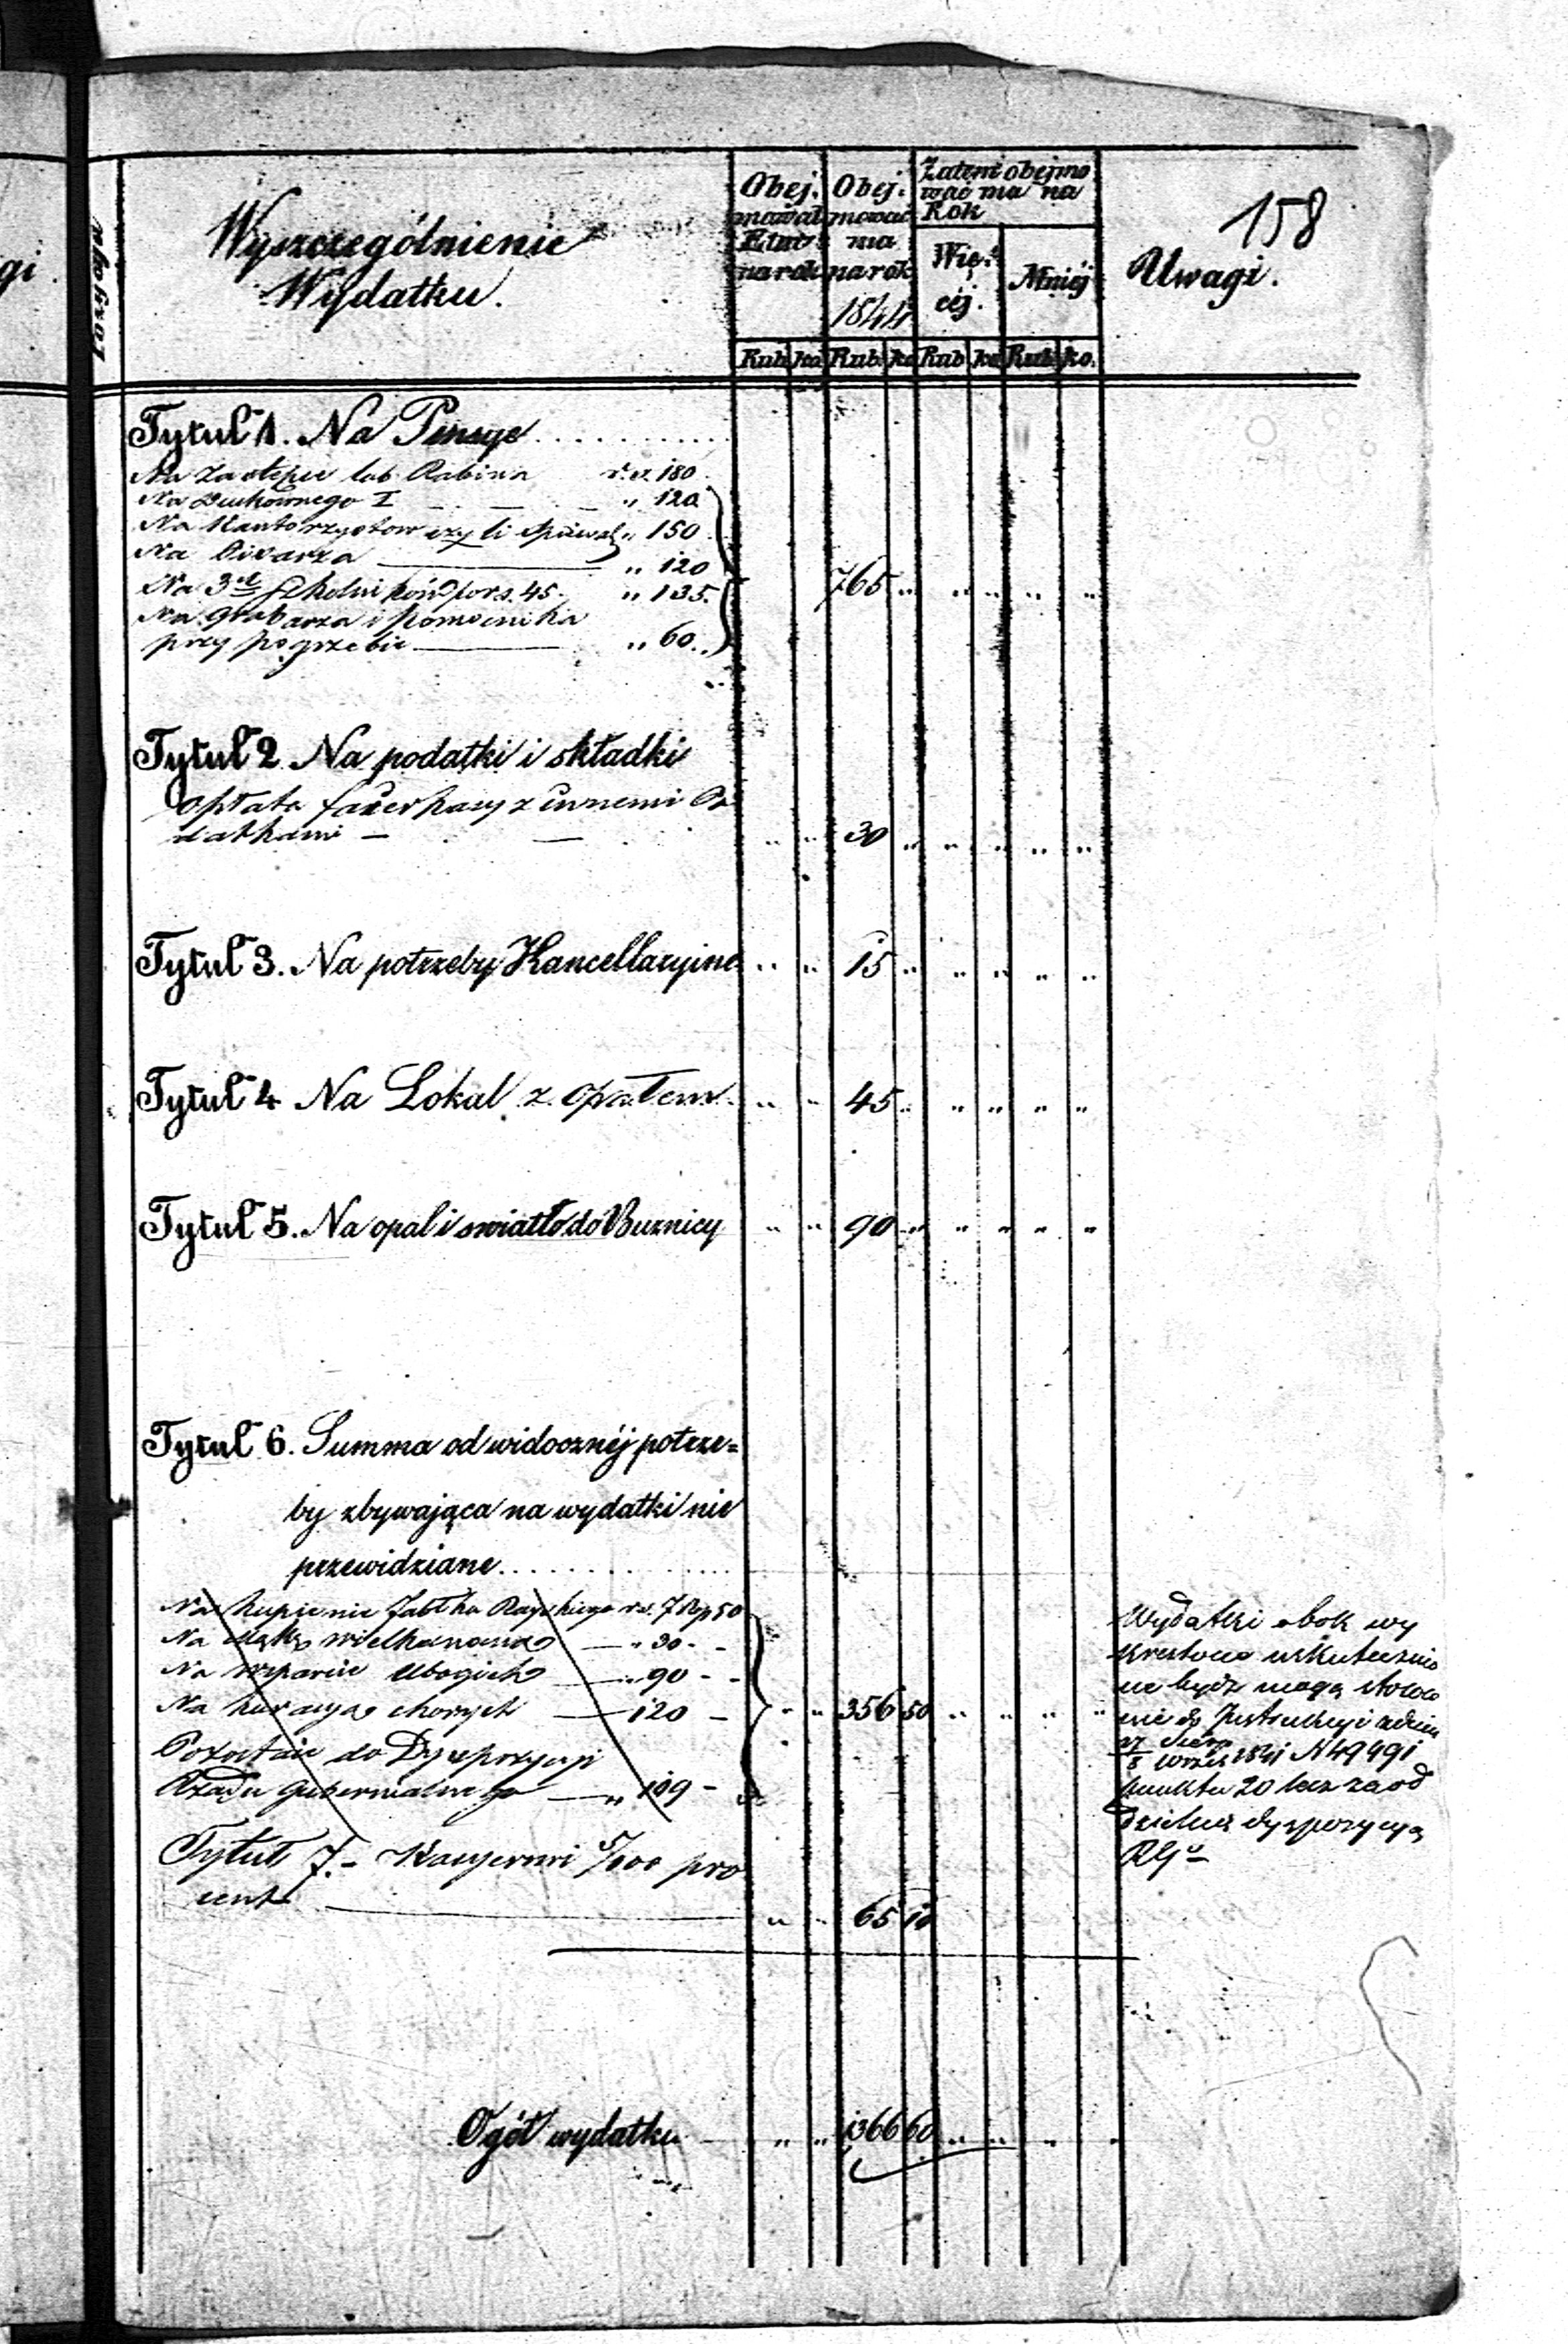 158
gi.
Liczba
Wyszczególnienie
Wydatku.
Obej.
mował
Etat
na rok
Obej.
mować
ma
na rok
1844
Zatem obejmo
wać ma na
Rok
Wię.
céj.
Mniéj
Uwagi.
Rub ko Rub ko Rub ko Rub ko.
Tytuł 1. Na Pensye . . . . . . . . . .
Na Zastępce lub Rabina r.s. 180
Na Duchownego I „ 120
Na Kantorzystow czyli Spiewak „ 150
Na Pisarza „ 120
Na 3ch Szkolników po r.s. 45. „ 135.
Na Grabarza i pomocnika
przy pogrzebie „ 60. 765 „ „ „ „ „
Tytuł 2. Na podatki i składki
Opłata z innemi Po
datkami — „ „ 30 „ „ „ „ „
Tytuł 3. Na potrzeby Kancellaryine „ „ 15 „ „ „ „ „
Tytuł 4 Na Lokal z opałem „ „ 45 „ „ „ „ „
Tytuł 5. Na opal i swiatło do Buznicy „ „ 90 „ „ „ „ „
Tytuł 6. Summa od widocznéj potrze=
by zbywająca na wydatki nie
przewidziane . . . . . . . . . .
Na kupienie Jabłka Rayskiego r.s. 7 kop 50
Na Mąkę wielkanocną — „ 30 - -
Na wsparcie Ubogich — „ 90 - -
Na kuracyą chorych — 120 - „ „ 356 50 „ „ „ „
Pozostaie do Dyspozycyi
Rządu Gubernialnego — „ 109 -
Wydatki obok wy
kreslone uskutecznio
ne bydź mogą stosow
nie do Instrukcyi z dnia
27 Sierp
8 Wrześ 1841 N 49491
punktu 20 lecz za od
dzielną dyspozycyą
RGo
Tytuł 7. - Kassyerowi 5/100 pro
cent — „ „ 65 10
Ogół wydatku „ „ 1366 60 „ „ „ „